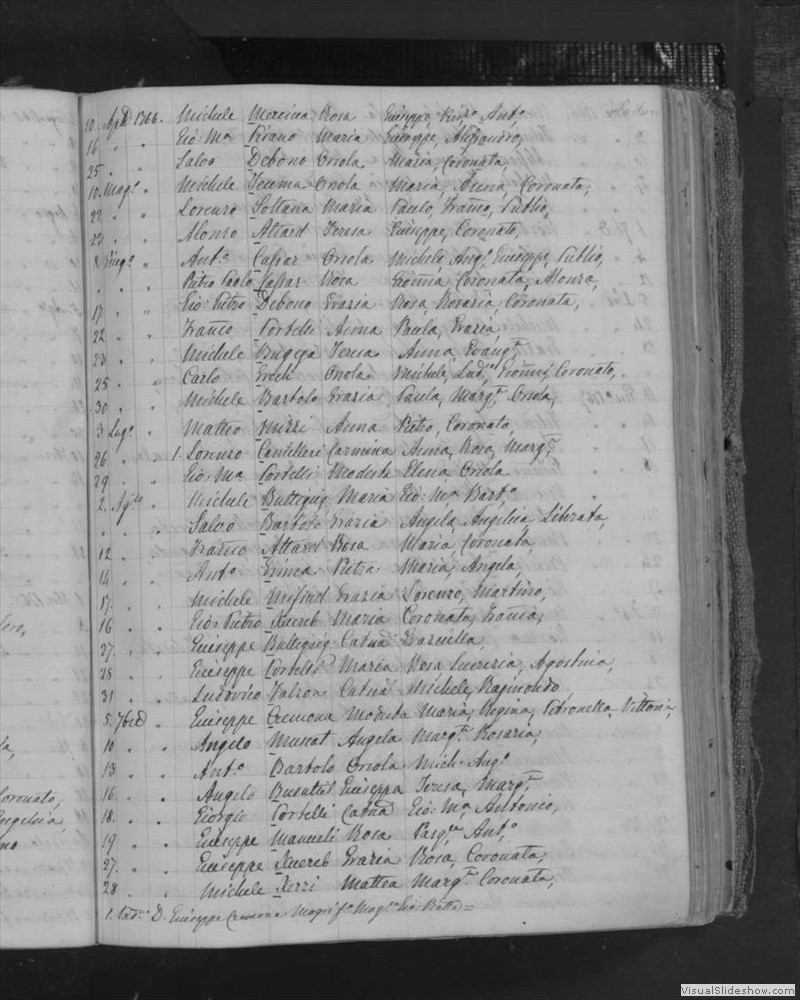 10 Aple 1766. Michele Mercieca Rosa Giuseppe, Ant.o
16 " " Gio: M.a Maria Giuseppe, Alessandro,
25 " " Salvo Debono Oriola Maria, Coronata,
10. Mag.o " Michele Oriola Maria, Anna, Coronata,
22 " " Lorenzo Soltana Maria Paulo, Franco, Publio,
23 " " Alonso Attard Teresa Giuseppe, Coronato,
8 Giug.o " Ant.o Caspar Oriola Michel Ang.o Giuseppe, Publio,
" " " Pietro Paolo Caspar Rosa Coronata, Alonza,
17. " " Gio: Pietro Debono Grazia Rosa, Rosaria, Coronata,
22 " " Franco Portelli Anna Paula, Grazia,
23 " " Michele Bugeja Teresa Anna, Evang.ta
25 " " Carlo Grech Oriola Michele, Lud.co Coronato,
30 " " Michele Bartolo Grazia Paula, Marg.ta Oriola,
3. Lug.o " Matteo Mizzi Anna Pietro, Coronato,
26 " " 1. Lorenzo Camilleri Carmina Anna, Rosa, Marg.ta
29 " " Gio: M.a Portelli Modesta Elena Oriola
2. Ag.to " Michele Buttigieg Maria Gio: M.a Bart.o
" " " Salvo Bartolo Grazia Angela, Angelica Librata,
12 " " Franco Attard Rosa Maria, Coronata,
14 " " Ant.o Grima Pietra Maria, Angela,
17. " " Michele Mifsud Grazia Lorenzo, Martino,
16 " " Gio: Pietro Xuereb Maria Coronata, Franca,
27 " " Giuseppe Buttigieg Catna
28 " " Giuseppe Portelli Maria Rosa Agostina,
31 " " Ludovico Falzon Catna Michele, Raimondo,
5. 7bre " Giuseppe Cremona Modesta Maria, Regina, Petronella, Vittoria,
10 " " Angelo Muscat Angela Marg.ta Rosaria,
13 " " Ant.o Bartolo Oriola Mich: Ang.o
16 " " Angelo Busuttil Giuseppa Teresa, Marg.ta
18. " " Giorgio Portelli Catna Gio: M.a Antonio,
19 " " Giuseppe Manueli Rosa Pasq.le Ant.o
27. " " Giuseppe Xuereb Grazia Rosa, Coronata,
28 " " Michele Xerri Mattea Marg.ta Coronata,
1. D. Giuseppe Cremona Mag.co Gio: Batta =
Coronato,
VisualSlideshow.com